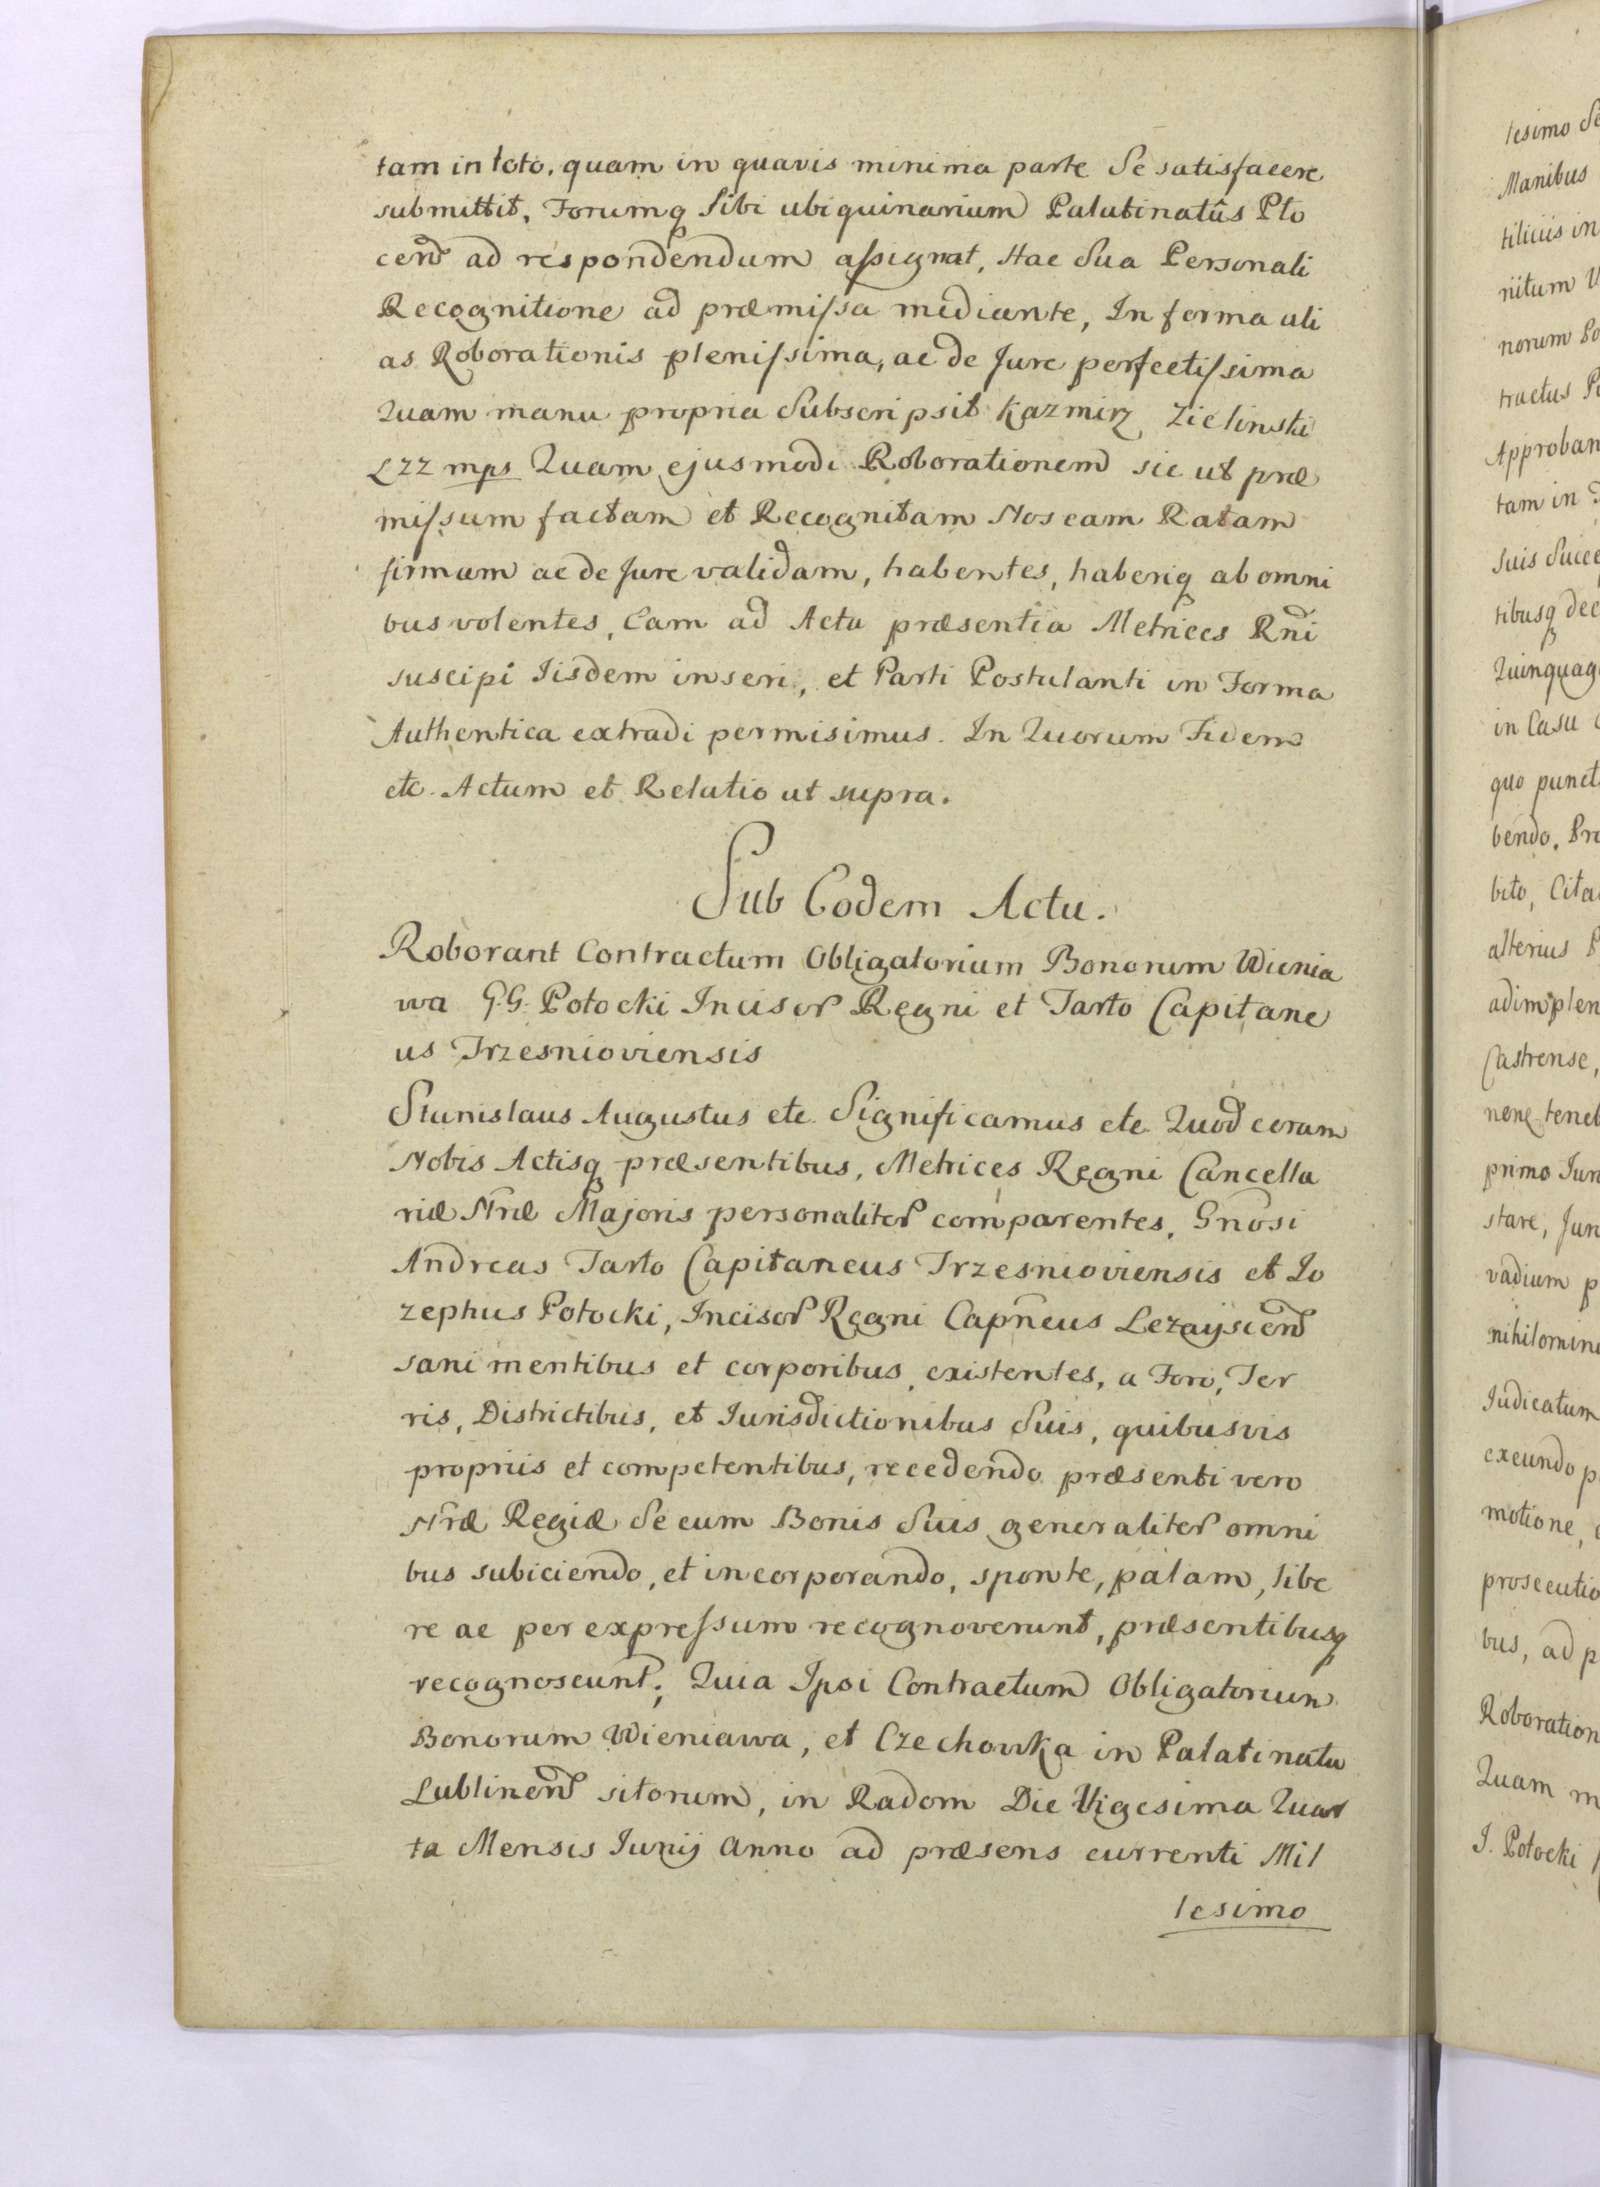 tam in toto, quam in quavis minima parte Se satisfacere
submittit, Forumq Sibi ubiquinarium Palatinatûs Plo
cen̄ ad respondendum aſsignat, Hac Sua Personali
Recognitione ad præmiſsa mediante, In forma ali
as Roborationis pleniſsima, ac de Jure perfectiſsima
Quam manu propria Subscripsit Kazmirz Zielinski
Lzz mps Quam ejusmodi Roborationem sic ut præ
miſsum factam et Recognitam Nos eam Ratam
firmam ac de Jure validam, habentes, haberiq ab omni
bus volentes, Eam ad Acta præsentia Metrices Rn̄i
suscipi Iisdem inseri, et Parti Postulanti in Forma
Authentica extradi permisimus. In Quorum Fidem
etc. Actum et Relatio ut supra.
Sub Eodem Actu.
Roborant Contractum Obligatorium Bonorum Wienia
wa G.G. Potocki Incisor Regni et Tarło Capitane
us Trzesnioviensis
Stanislaus Augustus etc. Significamus etc. Quod coram
Nobis Actisq præsentibus, Metrices Regni Cancella
riæ Nr̄æ Majoris personaliter comparentes, Gnōsi
Andreas Tarło Capitaneus Trzesnioviensis et Jo
zephus Potocki, Incisor Regni Capn̄eus Lezaysien̄
sani mentibus et corporibus, existentes, a Foro, Ter
ris, Districtibus, et Iurisdictionibus Suis, quibusvis
propriis et competentibus, recedendo præsenti vero
Nr̄æ Regiæ Se cum Bonis Suis generaliter omni
bus subiciendo, et incorporando, sponte, palam, libe
re ac per expreſsum recognoverunt, præsentibusq
recognoscunt; Quia Ipsi Contractum Obligatorium
Bonorum Wieniawa, et Czechowka in Palatinatu
Lublinen̄ sitorum, in Radom Die Vigesima Quar
ta Mensis Junij Anno ad præsens currenti Mil
lesimo
lesimo Se
Manibus
tiliciis in
nitum
norum Po
tractus
Approban
tam in
Suis Succe
tibusq dec
Quinquag
in Casu
quo punct
bendo. Pro
bito, Cita
alterius
adimplen
Castrense,
nere teneb
primo Jur
stare, Jur
vadium p
nihilomin
Iudicatum
exeundo p
motione,
prosecutio
bus, ad p
Roboration
Quam m
J. Potocki